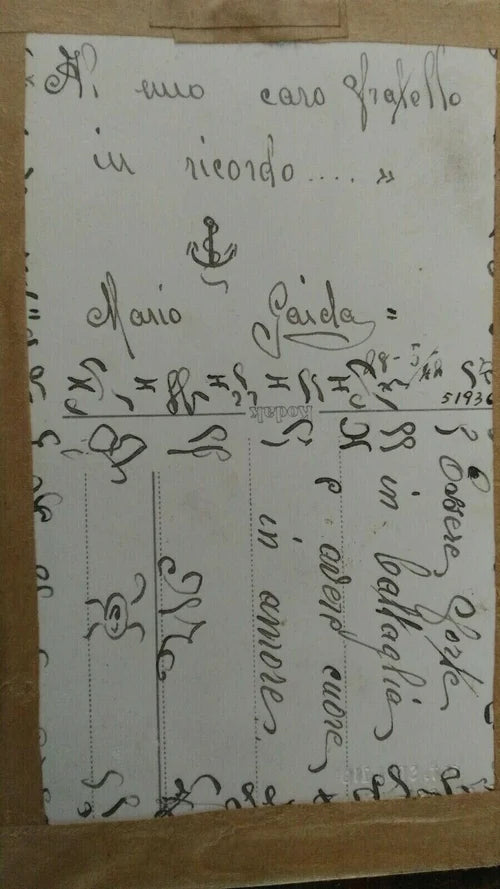 Al mio caro fratello
in ricordo.... "
Mario Gaida =
Kodak
51936
Essere forte
in battaglia
e avere cuore
in amore.